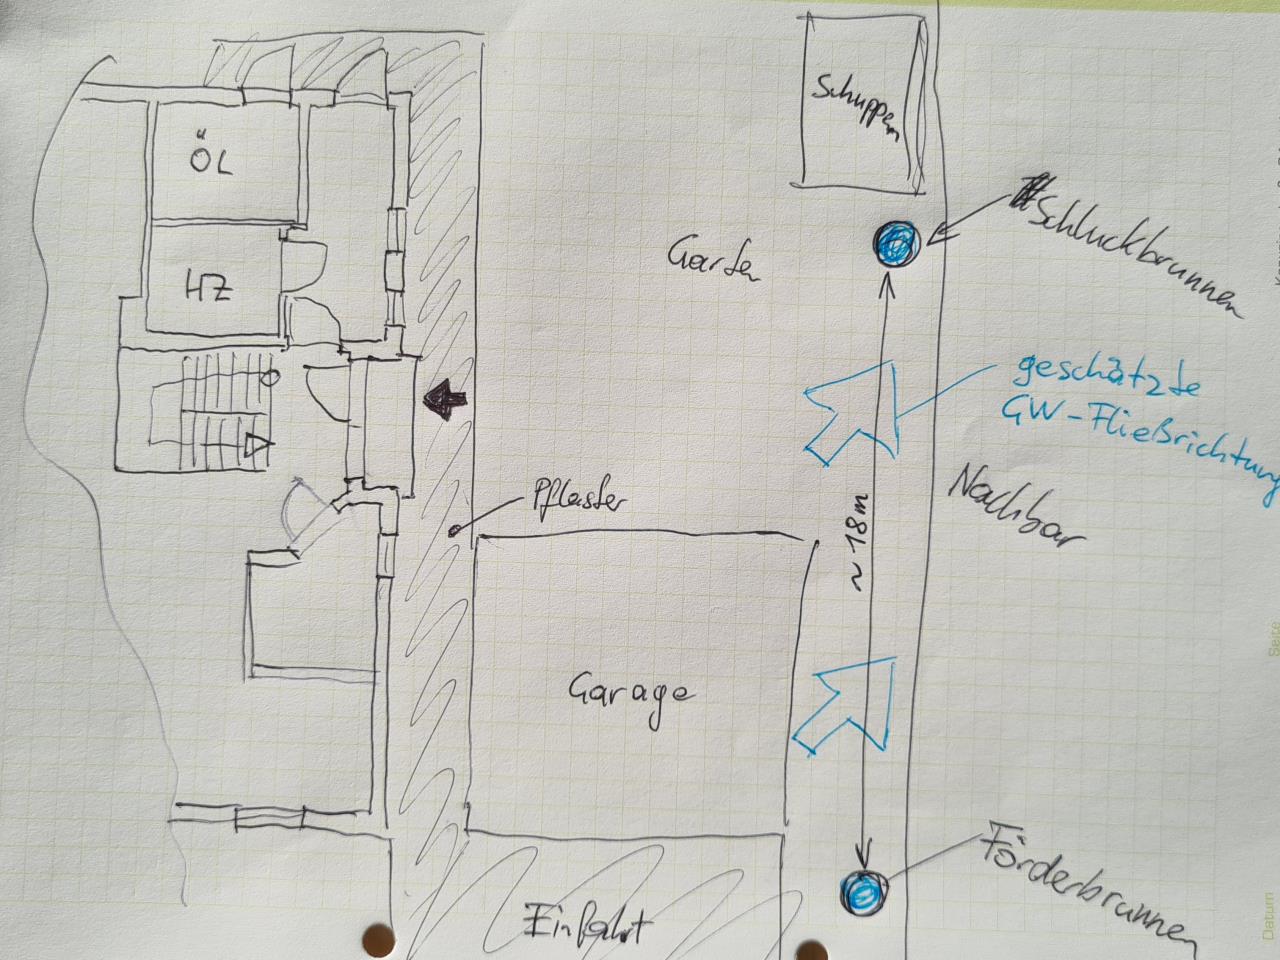 Schuppen
ÖL
Schluckbrunnen
Garten
HZ
geschätzte
GW-Fließrichtung
Nachbar
Pflaster
~ 18m
Garage
Förderbrunnen
Einfahrt
Seite
Datum